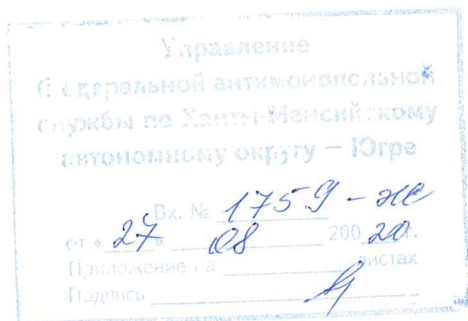 Управление
Федеральной антимонопольной
службы по Ханты-Мансийскому
автономному округу – Югре
Вх. № 1759-ж
от « 27 » 08 200 20 г.
Приложение на ______ листах
Подпись